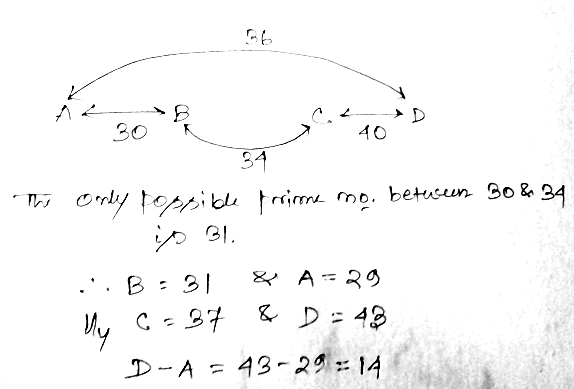 36
A B C. D
30 34 40
The only possible prime no. between 30 & 34
is 31.
∴ B = 31 & A = 29
lly C = 37 & D = 43
D - A = 43 - 29 = 14